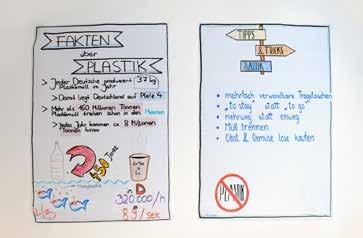 FAKTEN
über
PLASTIK
> Jeder Deutsche produziert 37 kg
Plastikmüll im Jahr
> Damit liegt Deutschland auf Platz 4
> Mehr als 150 Millionen Tonnen
Plastikmüll treiben schon in den Meeren
> Jedes Jahr kommen ca. 8 Millionen
Tonnen hinzu
450 Jahre
Coffee
to
Go
320.000/h
89/sek
TIPPS
& TRICKS
PLASTIK
• mehrfach verwendbare Tragetaschen
• "to stay" statt "to go"
• mehrweg statt einweg
• Müll trennen
• Obst & Gemüse lose kaufen
PLASTIK